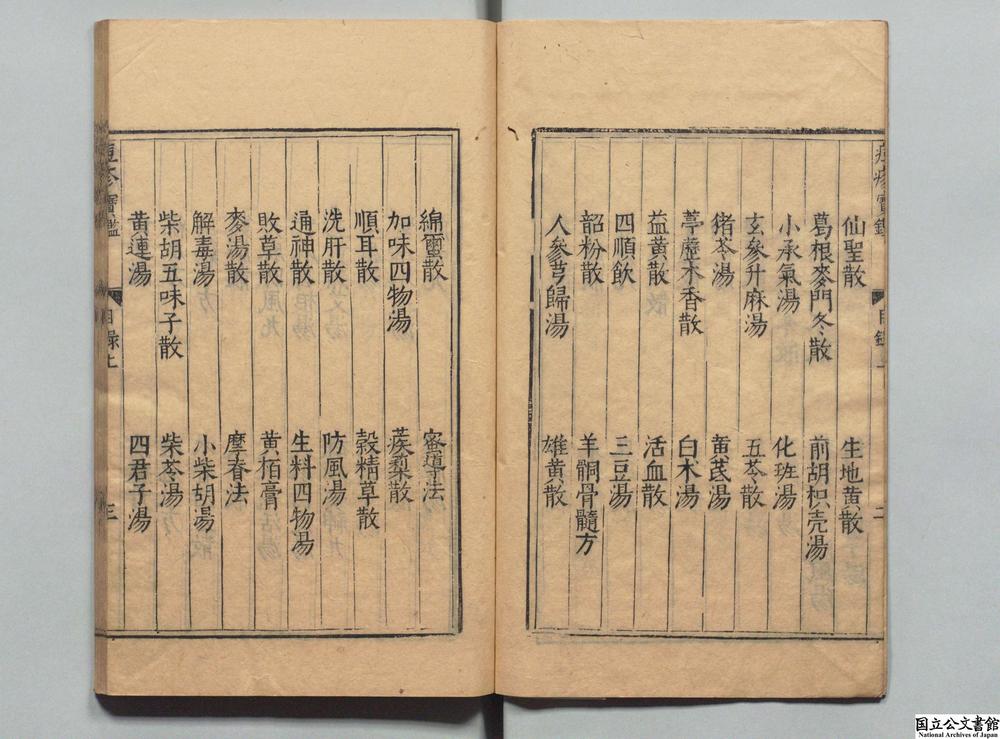 仙聖散 生地黄散
葛根麥門冬散 前胡枳壳湯
小承氣湯 化班湯
玄參升麻湯 五苓散
猪苓湯 黄芪湯
葶藶木香散 白木湯
益黄散 活血散
四順飲 三豆湯
韶粉散 羊䯊骨髓方
人參芎歸湯 雄黄散
目錄上 二
綿蠒散 宻導法
加味四物湯 蒺蔾散
順耳散 糓精草散
洗肝散 防風湯
通神散 生料四物湯
敗草散 黄栢膏
麥湯散 摩脊法
解毒湯 小柴胡湯
柴胡五味子散 柴苓湯
黄連湯 四君子湯
痘疹寶鑑 目録上 三
国立公文書館
National Archives of Japan